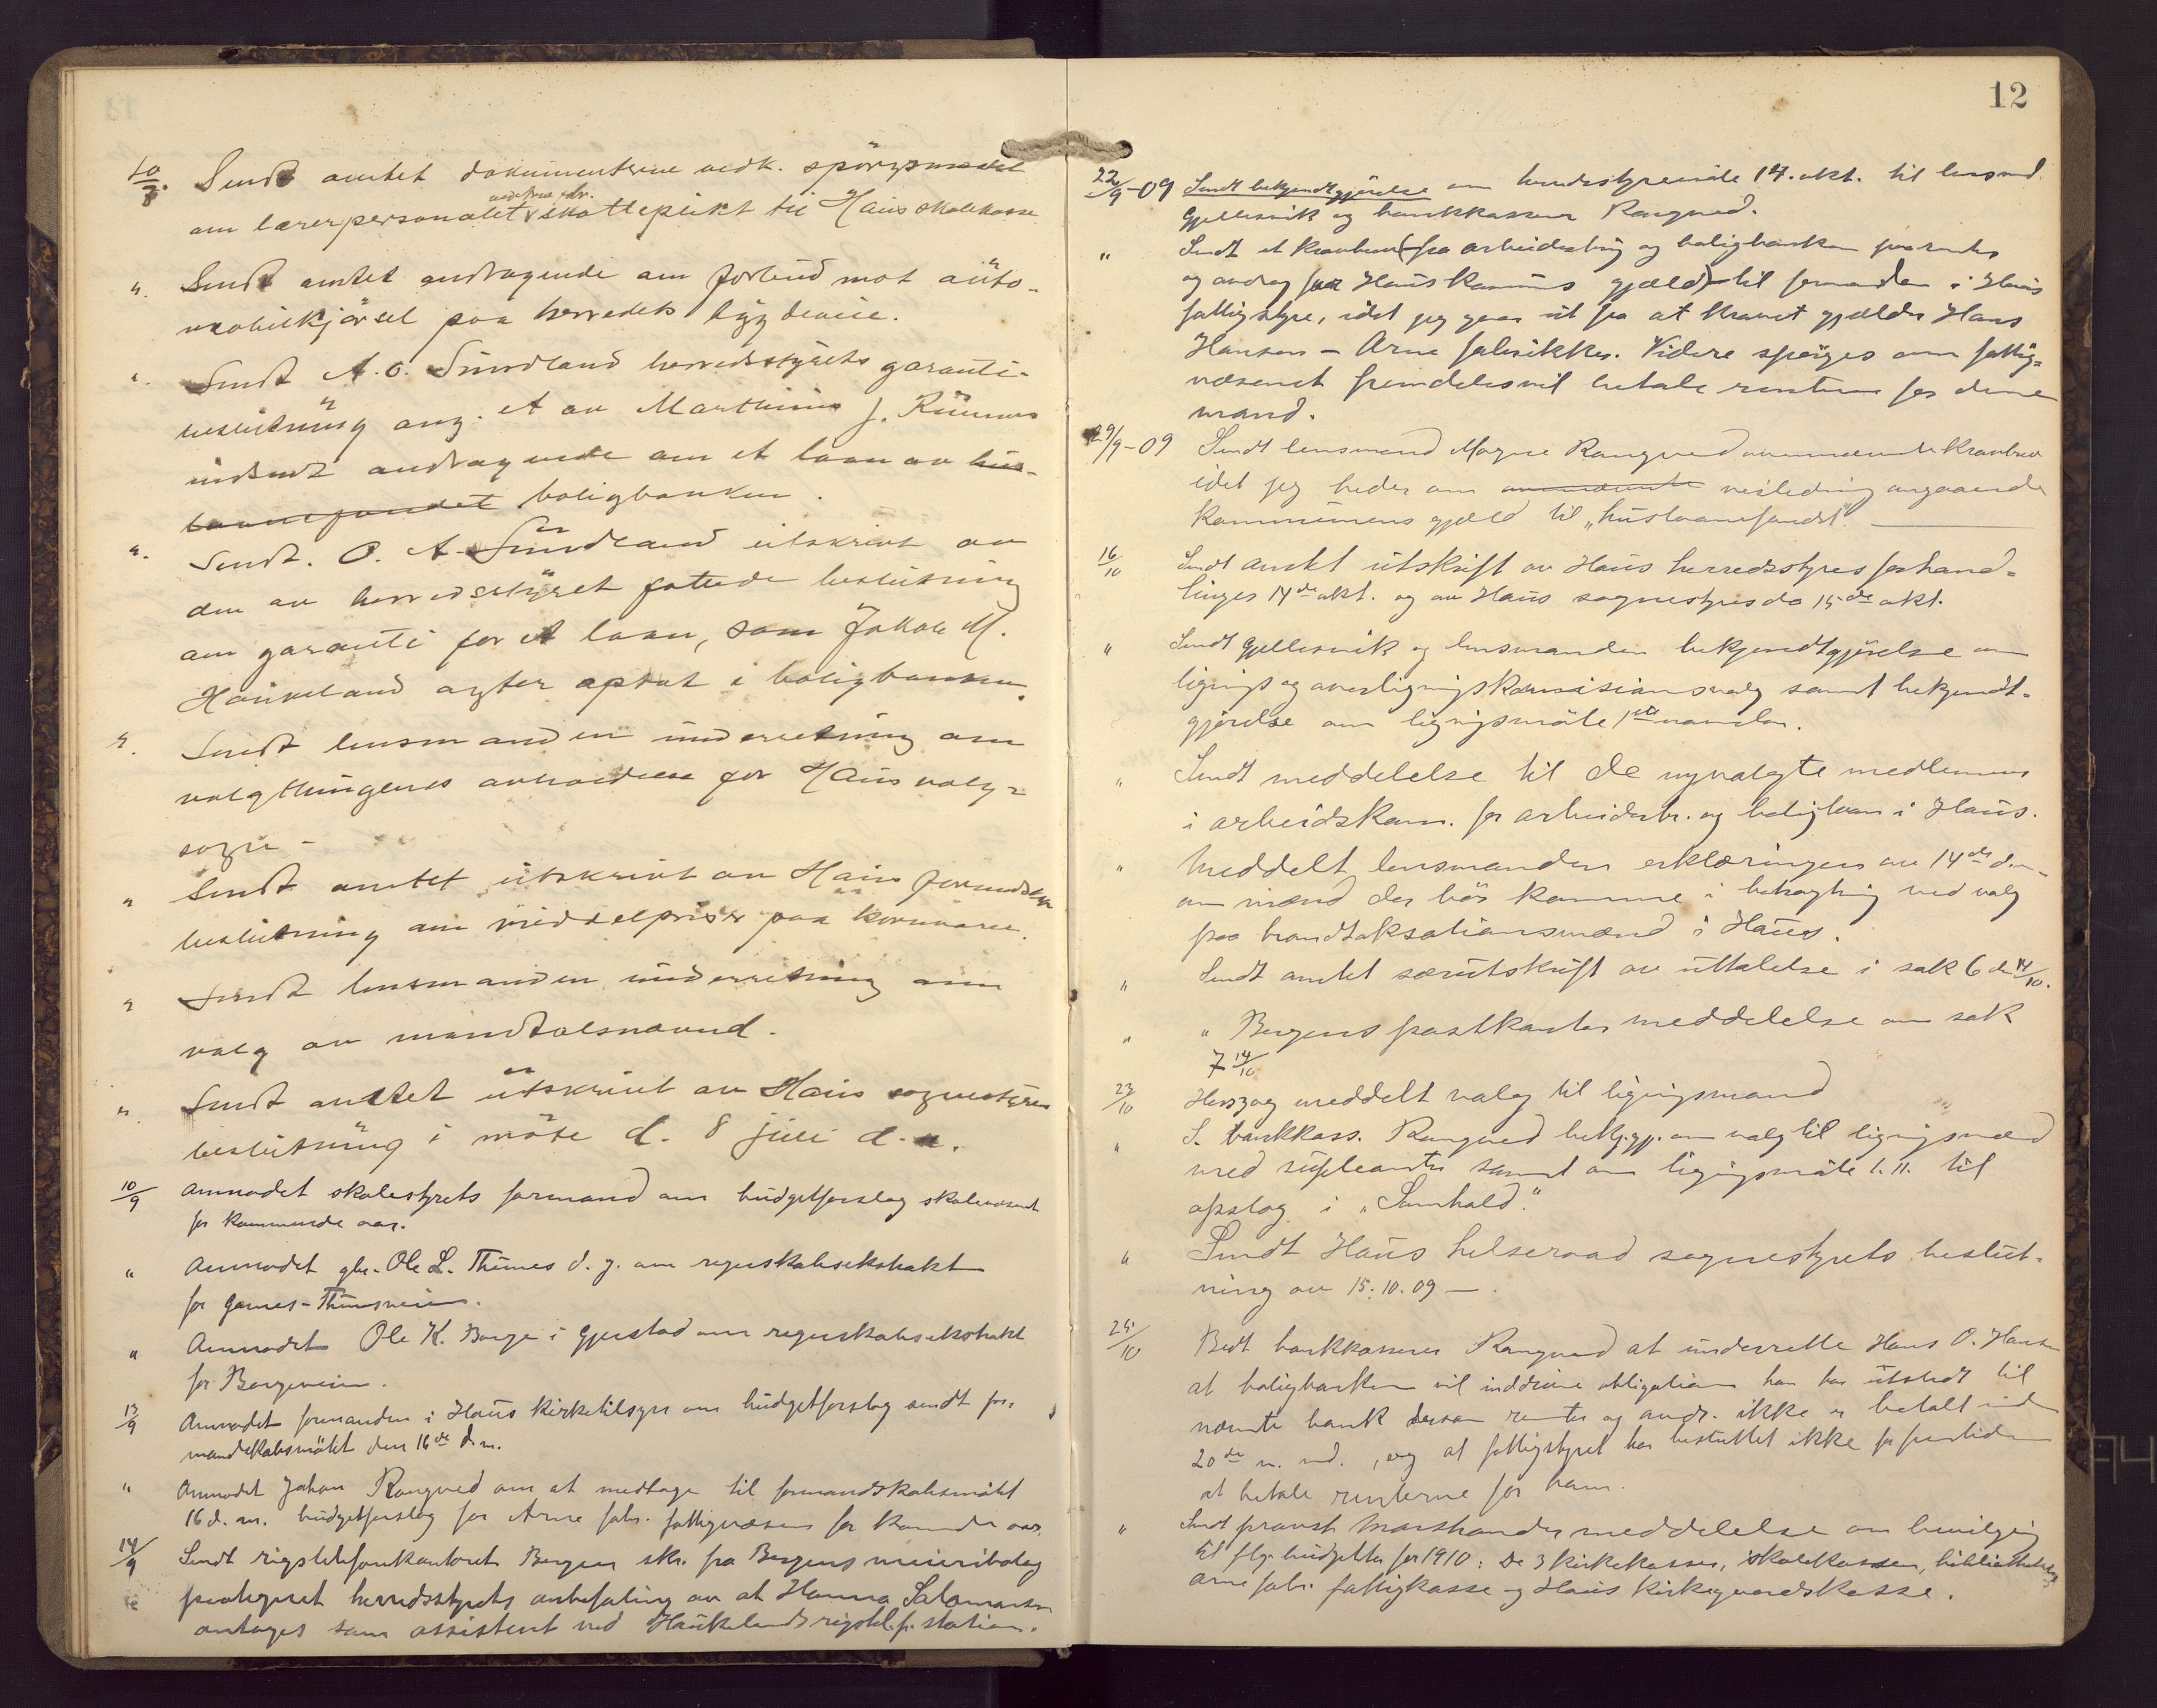 10/8. Sendt amtet dokumenterne vedk. spörgsmaalet
ved Arne fabr.
om lærerpersonalets skatteplikt til Haus skolekasse
". Sendt amtet andragende om forbud mot auto-
mobilkjörsel paa herredets bygdeveie.
". Sendt A. O. Sundland herredsstyrets garanti-
beslutning ang. et av Marthinus J.
indsendt andragende om et laan av hus-
laanefondet boligbanken.
". Sendt. O. A. Sundland utskrivt av
den av herredsstyret fattede beslutning
om garanti for et laan, som Jakob M.
Haukeland agter optat i boligbanken.
". Sendt lensmanden underretning om
valgthingenes avholdelse for Haus valg-
sogn -
" Sendt amtet utskrivt av Haus formandsk.
beslutning om middelpriser paa kornvarer.
" Sendt lensmanden underretning om
valg av mandtalsnævnd.
". Sendt amtet utskrivt av Haus sognestyres
beslutning i möte d. 8 juli d. a.
10/9 Anmodet skolestyrets formand om budgetforslag skolevæsenet
for kommende aar.
" Anmodet gbr. Ole L. Thunes d. y. om regnskabsekstrakt
for Garnes-Thunesveien.
" Anmodet Ole K. Borge i Gjerstad om regnskabsekstrakt
for Borgeveien.
13/9 Anmodet formanden i Haus kirketilsyn om budgetforslag sendt for-
mandskabsmötet den 16de d. m.
" Anmodet Johan Rongved om at medtage til formandskabsmötet
16 d. m. budgetforslag for Arne fabr. fattigvæsen for kommende aar.
14/9 Sendt rigstelefonkontoret Bergen skr. fra Bergens meieribolag
paategnet herredsstyrets anbefaling av at Hanna Salomonsen
antages som assistent ved Haukelands rigstelf. station.
12
22/9-09 Sendt bekjendtgjörelse om herredsstyremöte 14. okt. til lensmd.
Gjellesvik og bankkasserer Rongved.
" Sendt et kravbrev (fra arbeiderbrug og boligbanken paa renter
og avdrag paa Haus kommunes gjæld) til formanden i Haus
fattigstyre, idet jeg gaar ut fra at kravet gjælder Hans
Hansen - Arne fabrikker. Videre spörges om fattig-
væsenet fremdeles vil betale renterne for denne
mand.
29/9-09 Sendt lensmand Mogne Rongved ovennævnte kravbrev
idet jeg beder om ovennævnte veiledning angaaende
kommunens gjæld til "huslaanefondet".
16/10 Sendt amtet utskrift av Haus herredsstyres forhand-
linger 14de okt. og av Haus sognestyres do 15de okt.
" Sendt Gjellesvik og lensmanden bekjendtgjörelse om
lignings og overligningskommisionsvalg samt bekjendt-
gjörelse om ligningsmöte 1ste november.
" Sendt meddelelse til de nyvalgte medlemmer
i arbeidskom. for arbeiderbr. og boliglaan i Haus.
" Meddelt lensmanden erklæringen av 14de ds
om mænd der bör komme i betragtning ved valg
paa brandtaksationsmænd i Haus.
" Sendt amtet særutskrift av uttalelse i sak 6 den 14/10.
" " Bergens postkontor meddelelse om sak
7 14/10
23/10 Herzog meddelt valg til ligningsmand
" S. bankkass. Rongved bekj.gj. om valg til ligningsmænd
med supleanter samt om ligningsmöte 1. 11. til
opslag i "Samhald".
" Sendt Haus helseraad sognestyrets beslut-
ning av 15. 10. 09 -
25/10 Bedt bankkasserer Rongved at underrette Hans O. Hansen
at boligbanken vil inddrive obligationen han har utstedt til
nævnte bank dersom renter og avdr. ikke er betalt inden
20de n. md., og at fattigstyret har besluttet ikke for fremtiden
at betale renterne for ham.
" Sendt provst Marshander meddelelse om bevilgning
til flg. budgetter for 1910: De 3 kirkekasser, skolekassen, bibliotheket,
Arne fabr. fattigkasse og Haus kirkegaardskasse.